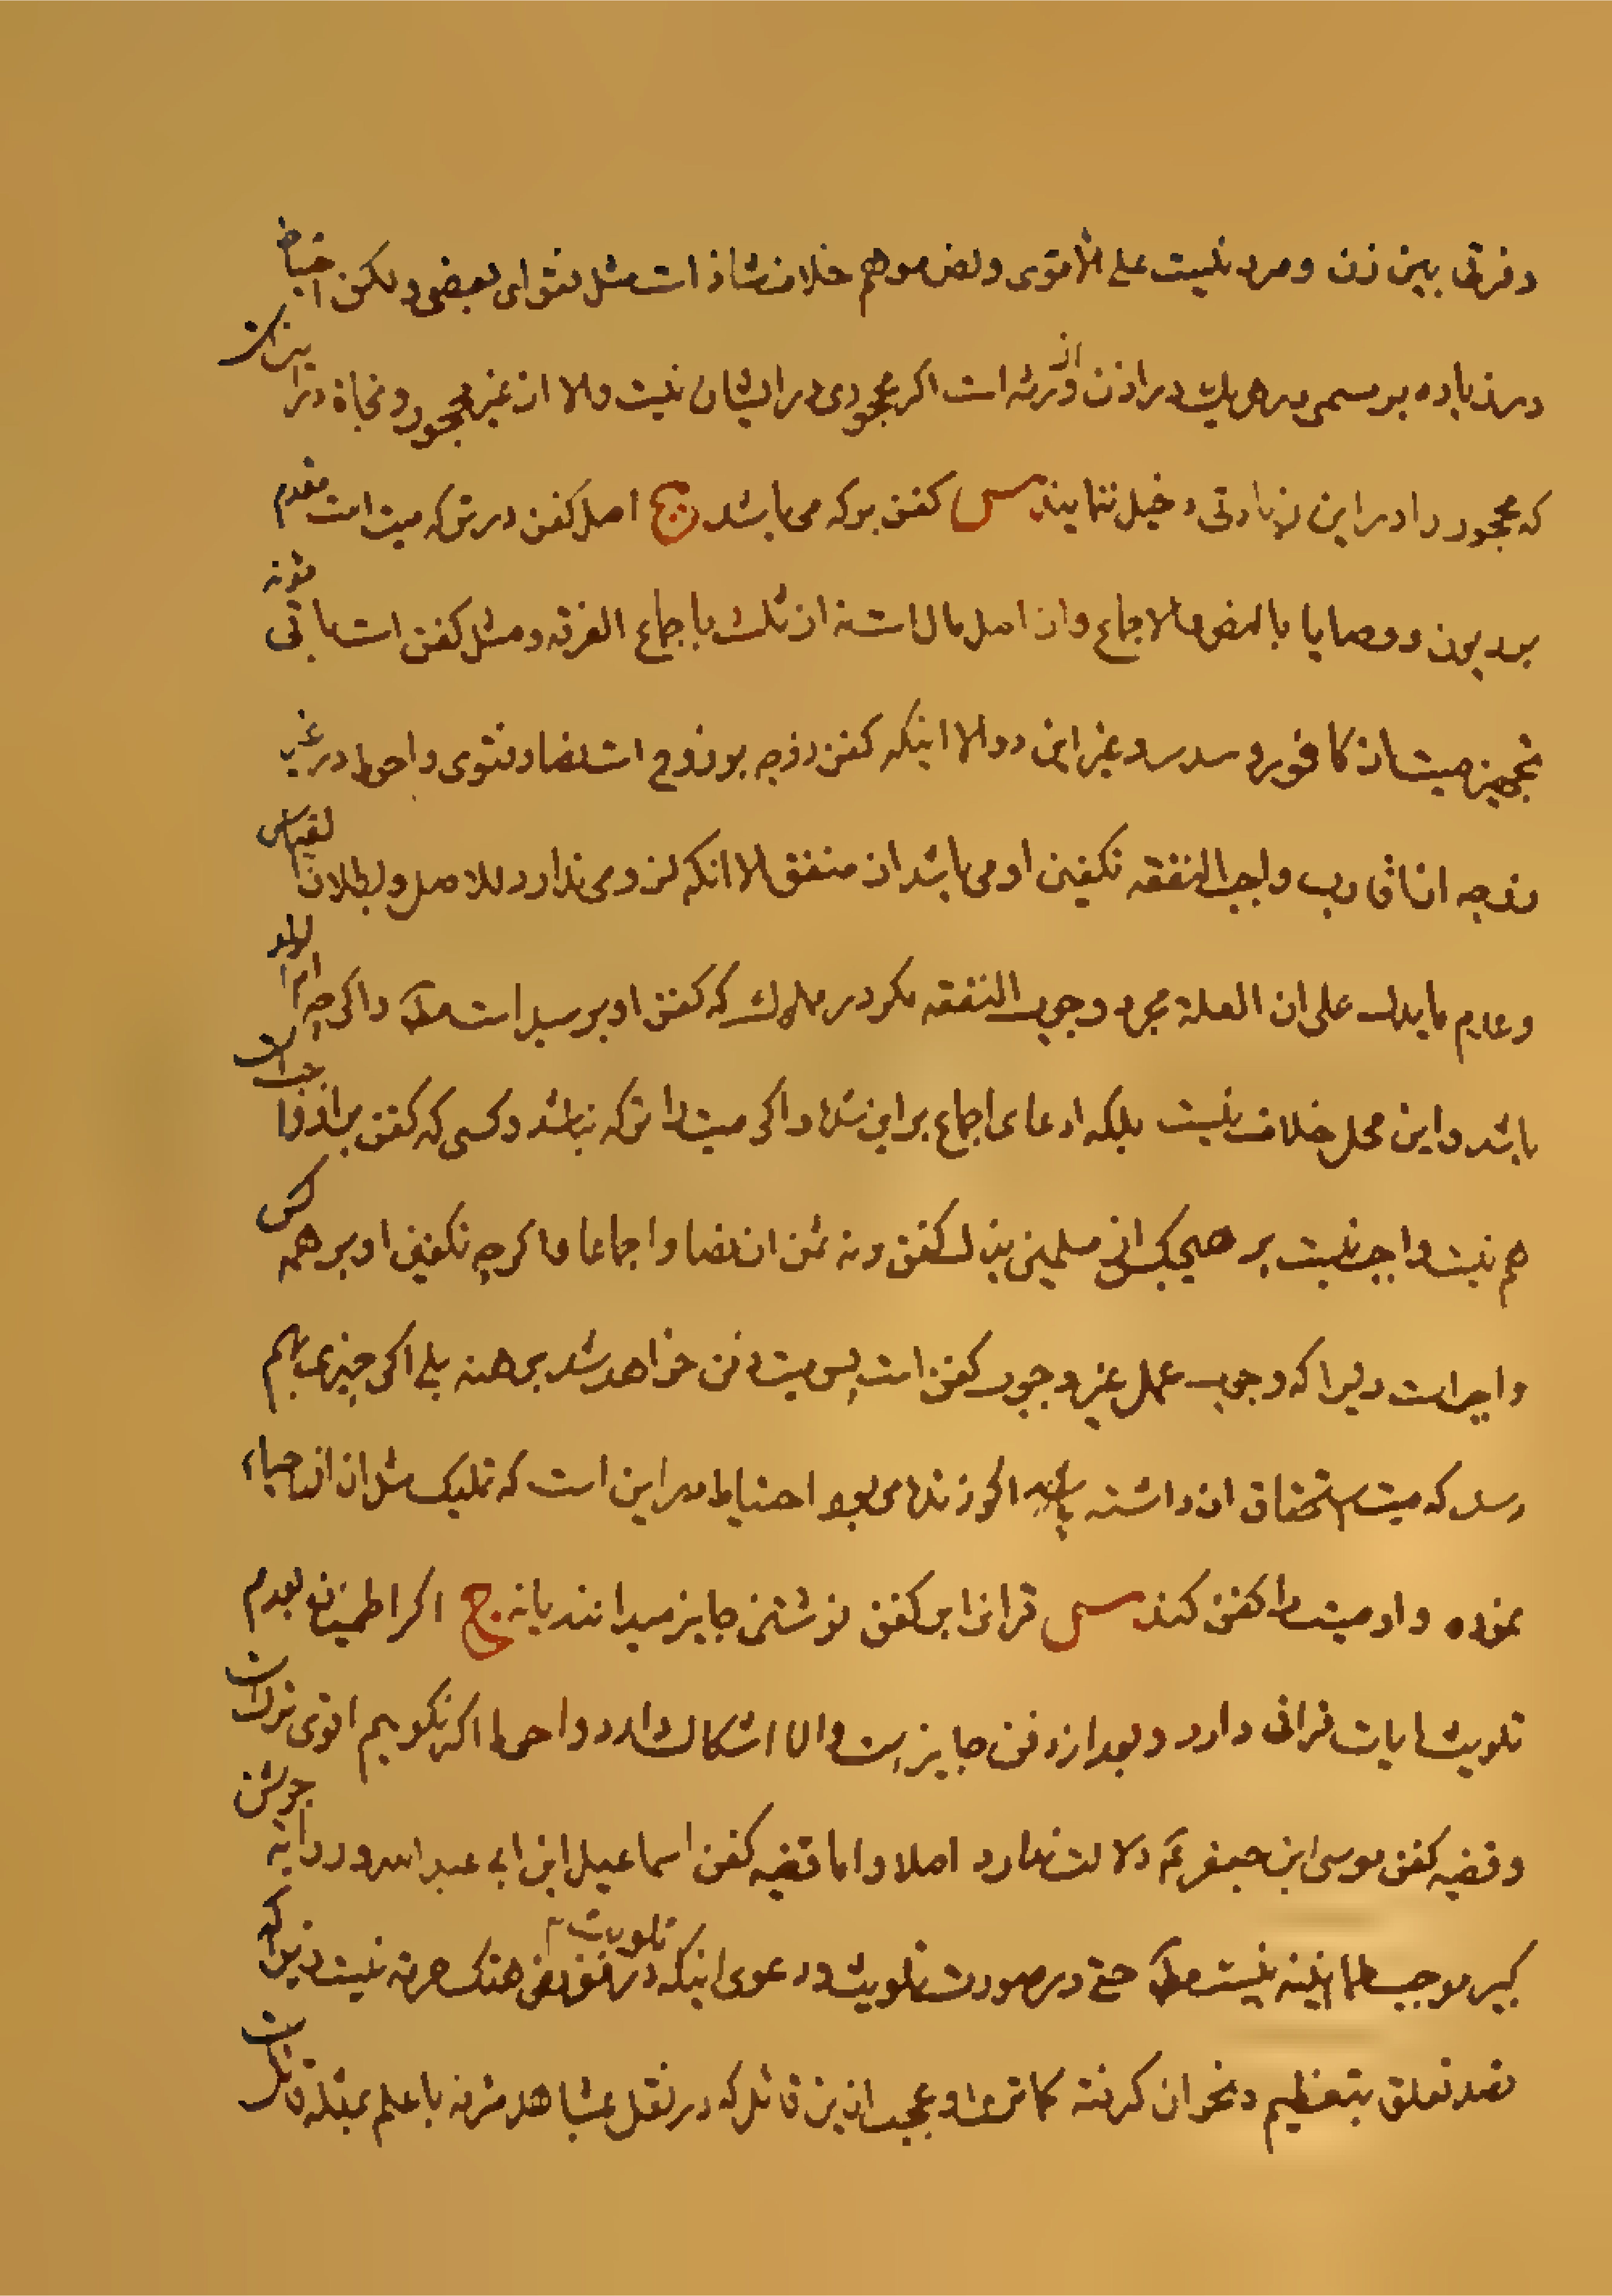 و فرقی بین زن و مرد نیست علی الاقوی و نص موهم خلاف شاذ است مثل فتوای بعضی و لکن احتیاط
در زیاده بر مسمی در هر یک در اذن از ورثه است اگر محجوری در ایشان نیست والا از غیر محجور و نجاة در این است
که محجور را در این زیادتی دخیل ننمایند س کفن بر که می باشد ج اصل کفن در ترکه میت است مقدم
بر دیون و وصایا بالنص والاجماع و از اصل مال است نه از ثلث باجماع الفرقه و مثل کفن است باقی مئونه
تجهیز میت از کافور و سدر و غیر این دو الا اینکه کفن زوجه بر زوج است نصا و فتوی و احوط در غیر
زوجه از اقارب واجب النفقه تکفین او می باشد از منفق الا انکه لزومی ندارد للاصل و لبطلان القیاس
و عدم ما یدل علی ان العلة مجرد وجوب النفقه مکر در مملوک که کفن او بر سید است مطلقا و اکر چه ام الولد
باشد و این محل خلاف نیست بلکه ادعای اجماع بر این شد و اکر میت را ترکه نباشد و کسی که کفن بر او واجب است
هم نیست واجب نیست بر هیچیک از مسلمین بذل کفن و نه ثمن ان نصا و اجماعا و اکرچه تکفین او بر همه کس
واجب است زیرا که وجوب عمل غیر وجوب کفن است پس میت دفن خواهد شد برهنه بلی اکر چیزی بهم
رسد که میت استحقاق ان داشته باشد اکر زنده می بود احتیاط در این است که تملیک مثل ان از احیاء
نموده و او میت را کفن کند س قران ابر کفن نوشتن جایز میدانند یا نه ج اکر اطمینان بعدم
تلویث ایات قرانی دارد و بعد از دفن جایز است والا اشکال دارد و احوط اکر نکوییم اقوی ترک است
و قضیه کفن موسی ابن جعفر ع دلالت ندارد اصلا و اما قضیه کفن اسماعیل ابن ابی عبد الله و روایة جوشن
کبیر موجب طمانینه نیست مطلقا حتی در صورت تلویث و دعوی اینکه در تلویث هتک حرمة نیست زیرا که
قصد تعلق بتعظیم و نحو ان کرفته کما تری و عجب از این قائل که در نقل بمشاهد مشرفه با علم بمثله قائل است